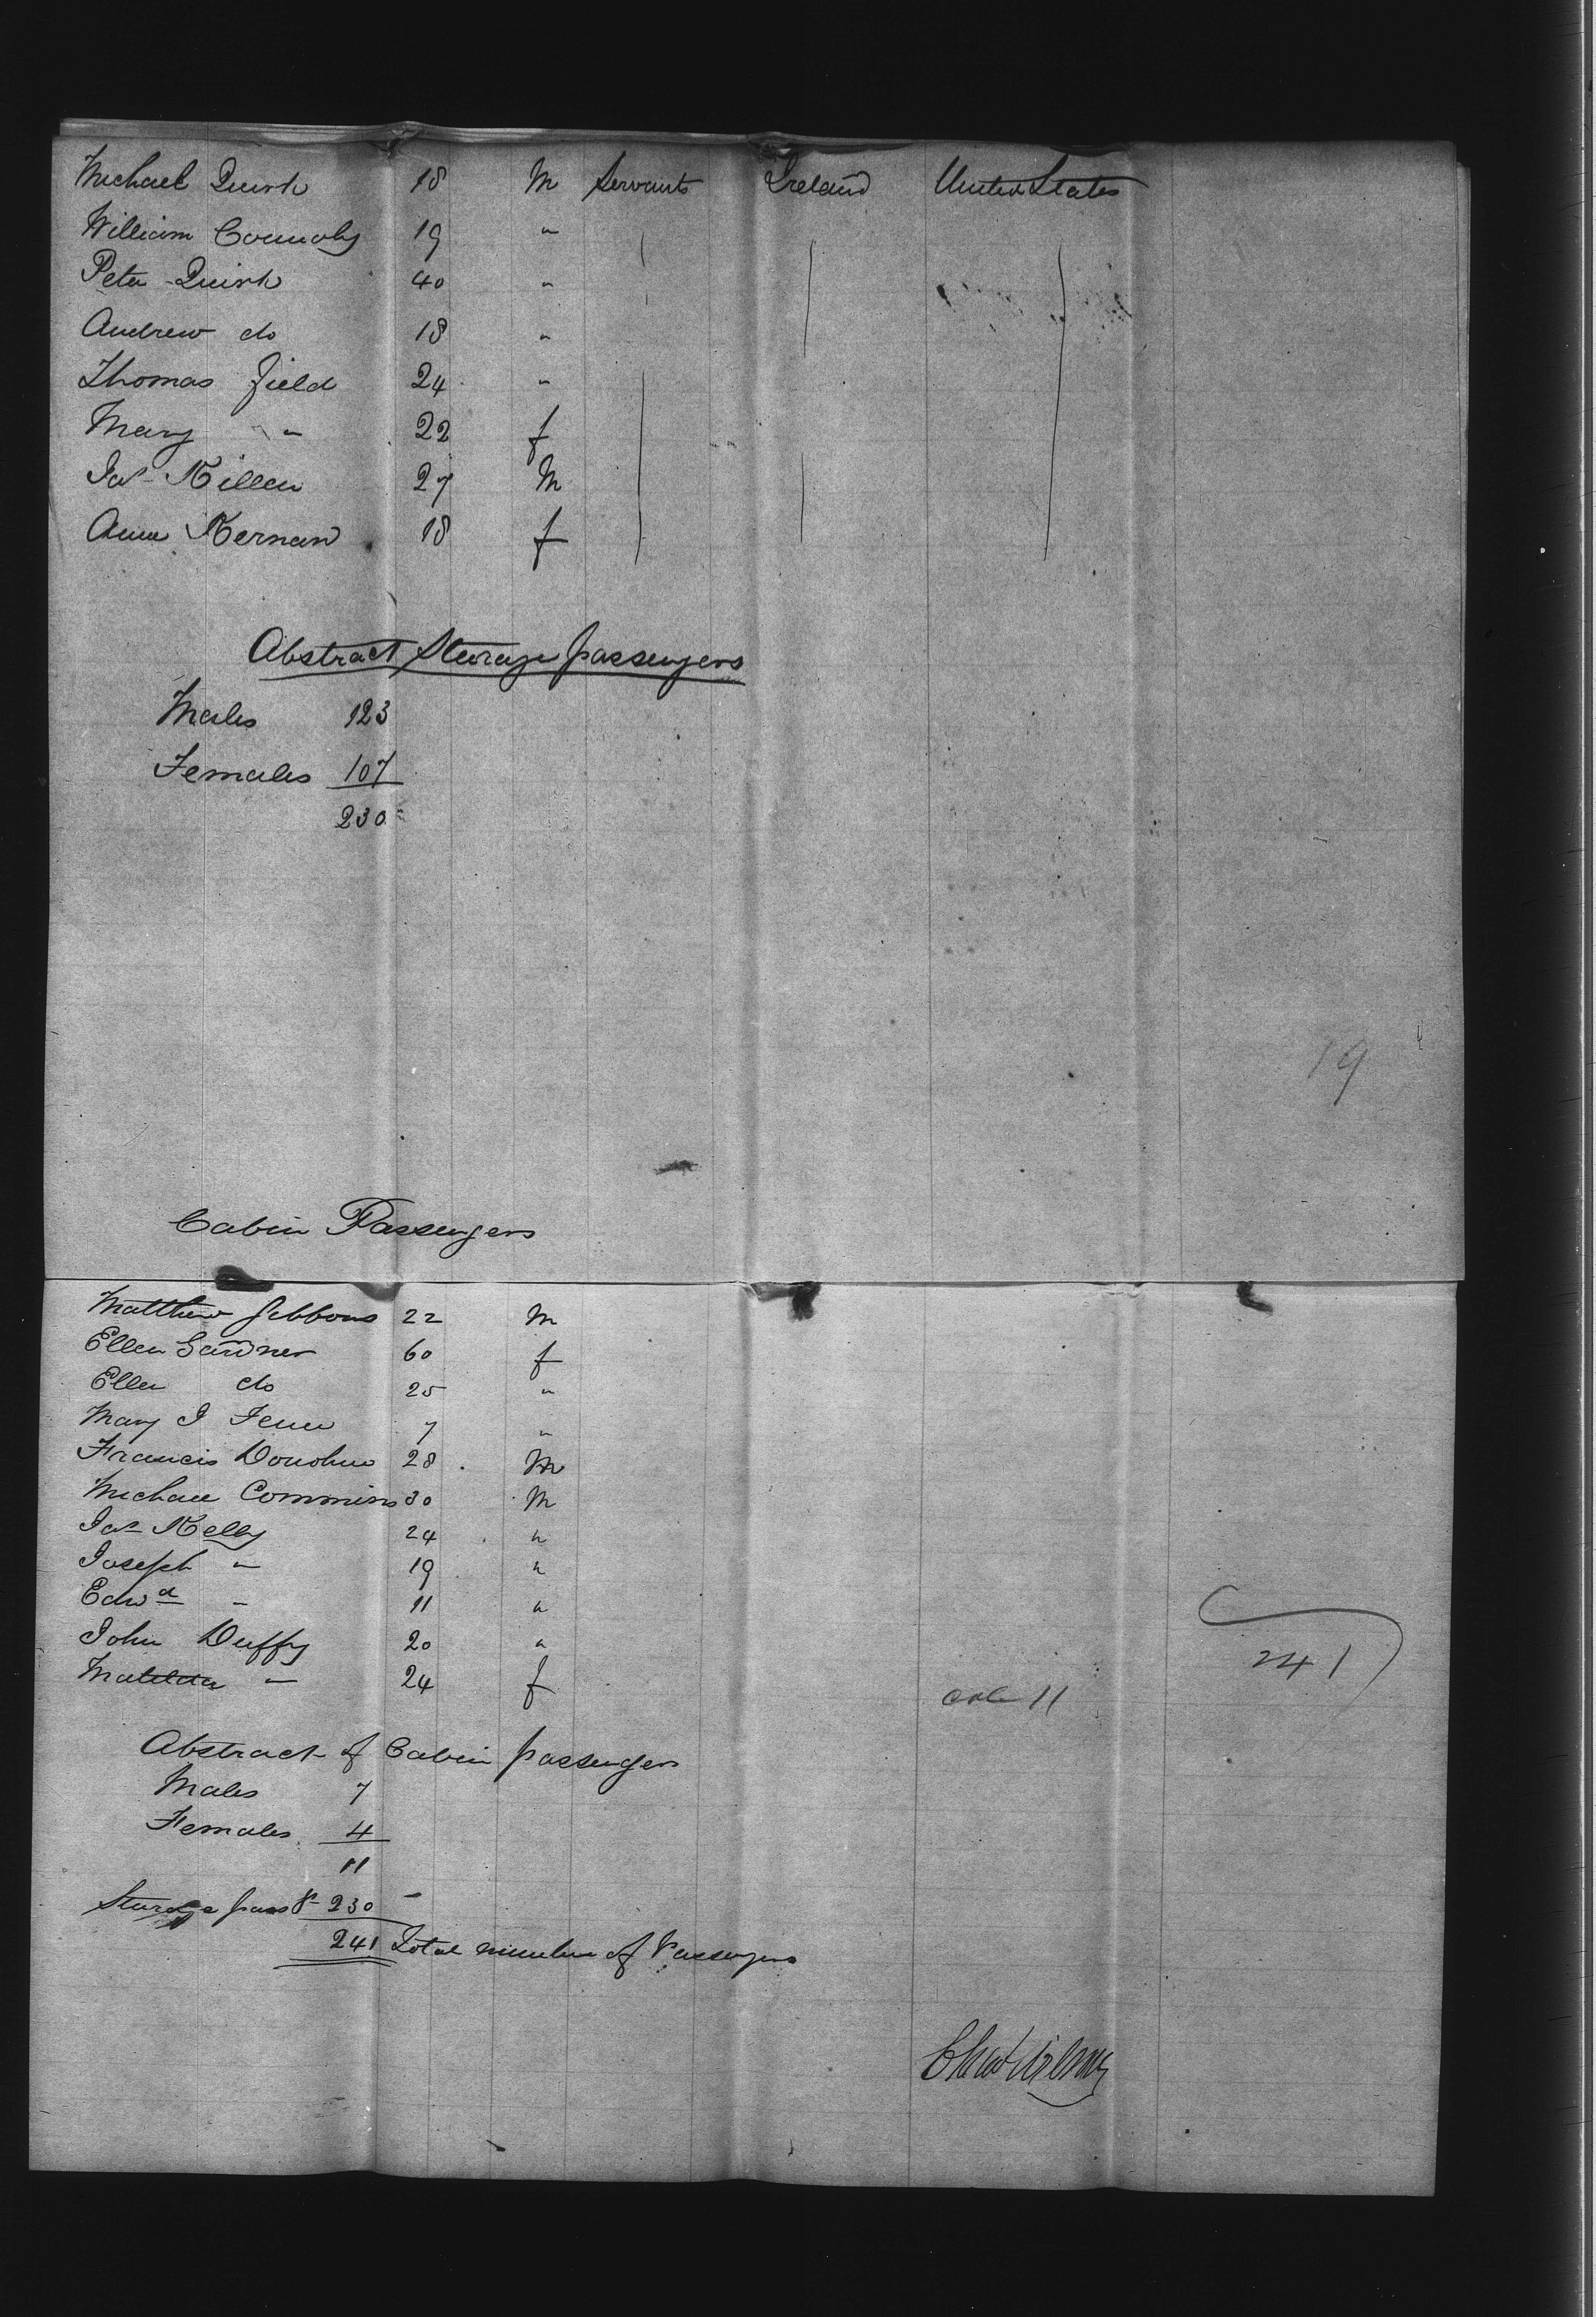 Michael Quirk 18 M Servants Ireland United States
William Connoly 19 "
Peter Quirk 40 "
Andrew do 18 "
Thomas Field 24 "
Mary " 22 f
Jas Killen 27 M
Ann Kernan 18 f
Abstract Sterage passengers
Males 123
Females 107
230
19
Cabin Passengers
Matthew Gibbons 22 M
Ellen Gardner 60 f
Ellen do 25 "
Mary J 7 "
Francis Donohue 28 M
Michael Commins 30 M
Jas Kelly 24 "
Joseph " 19 "
Edwd " 11 "
John Duffy 20 "
Matilda " 24 f
11
241
Abstract of Cabin passengers
Males 7
Females 4
11
Sterage pass 230
241 Total number of Passengers